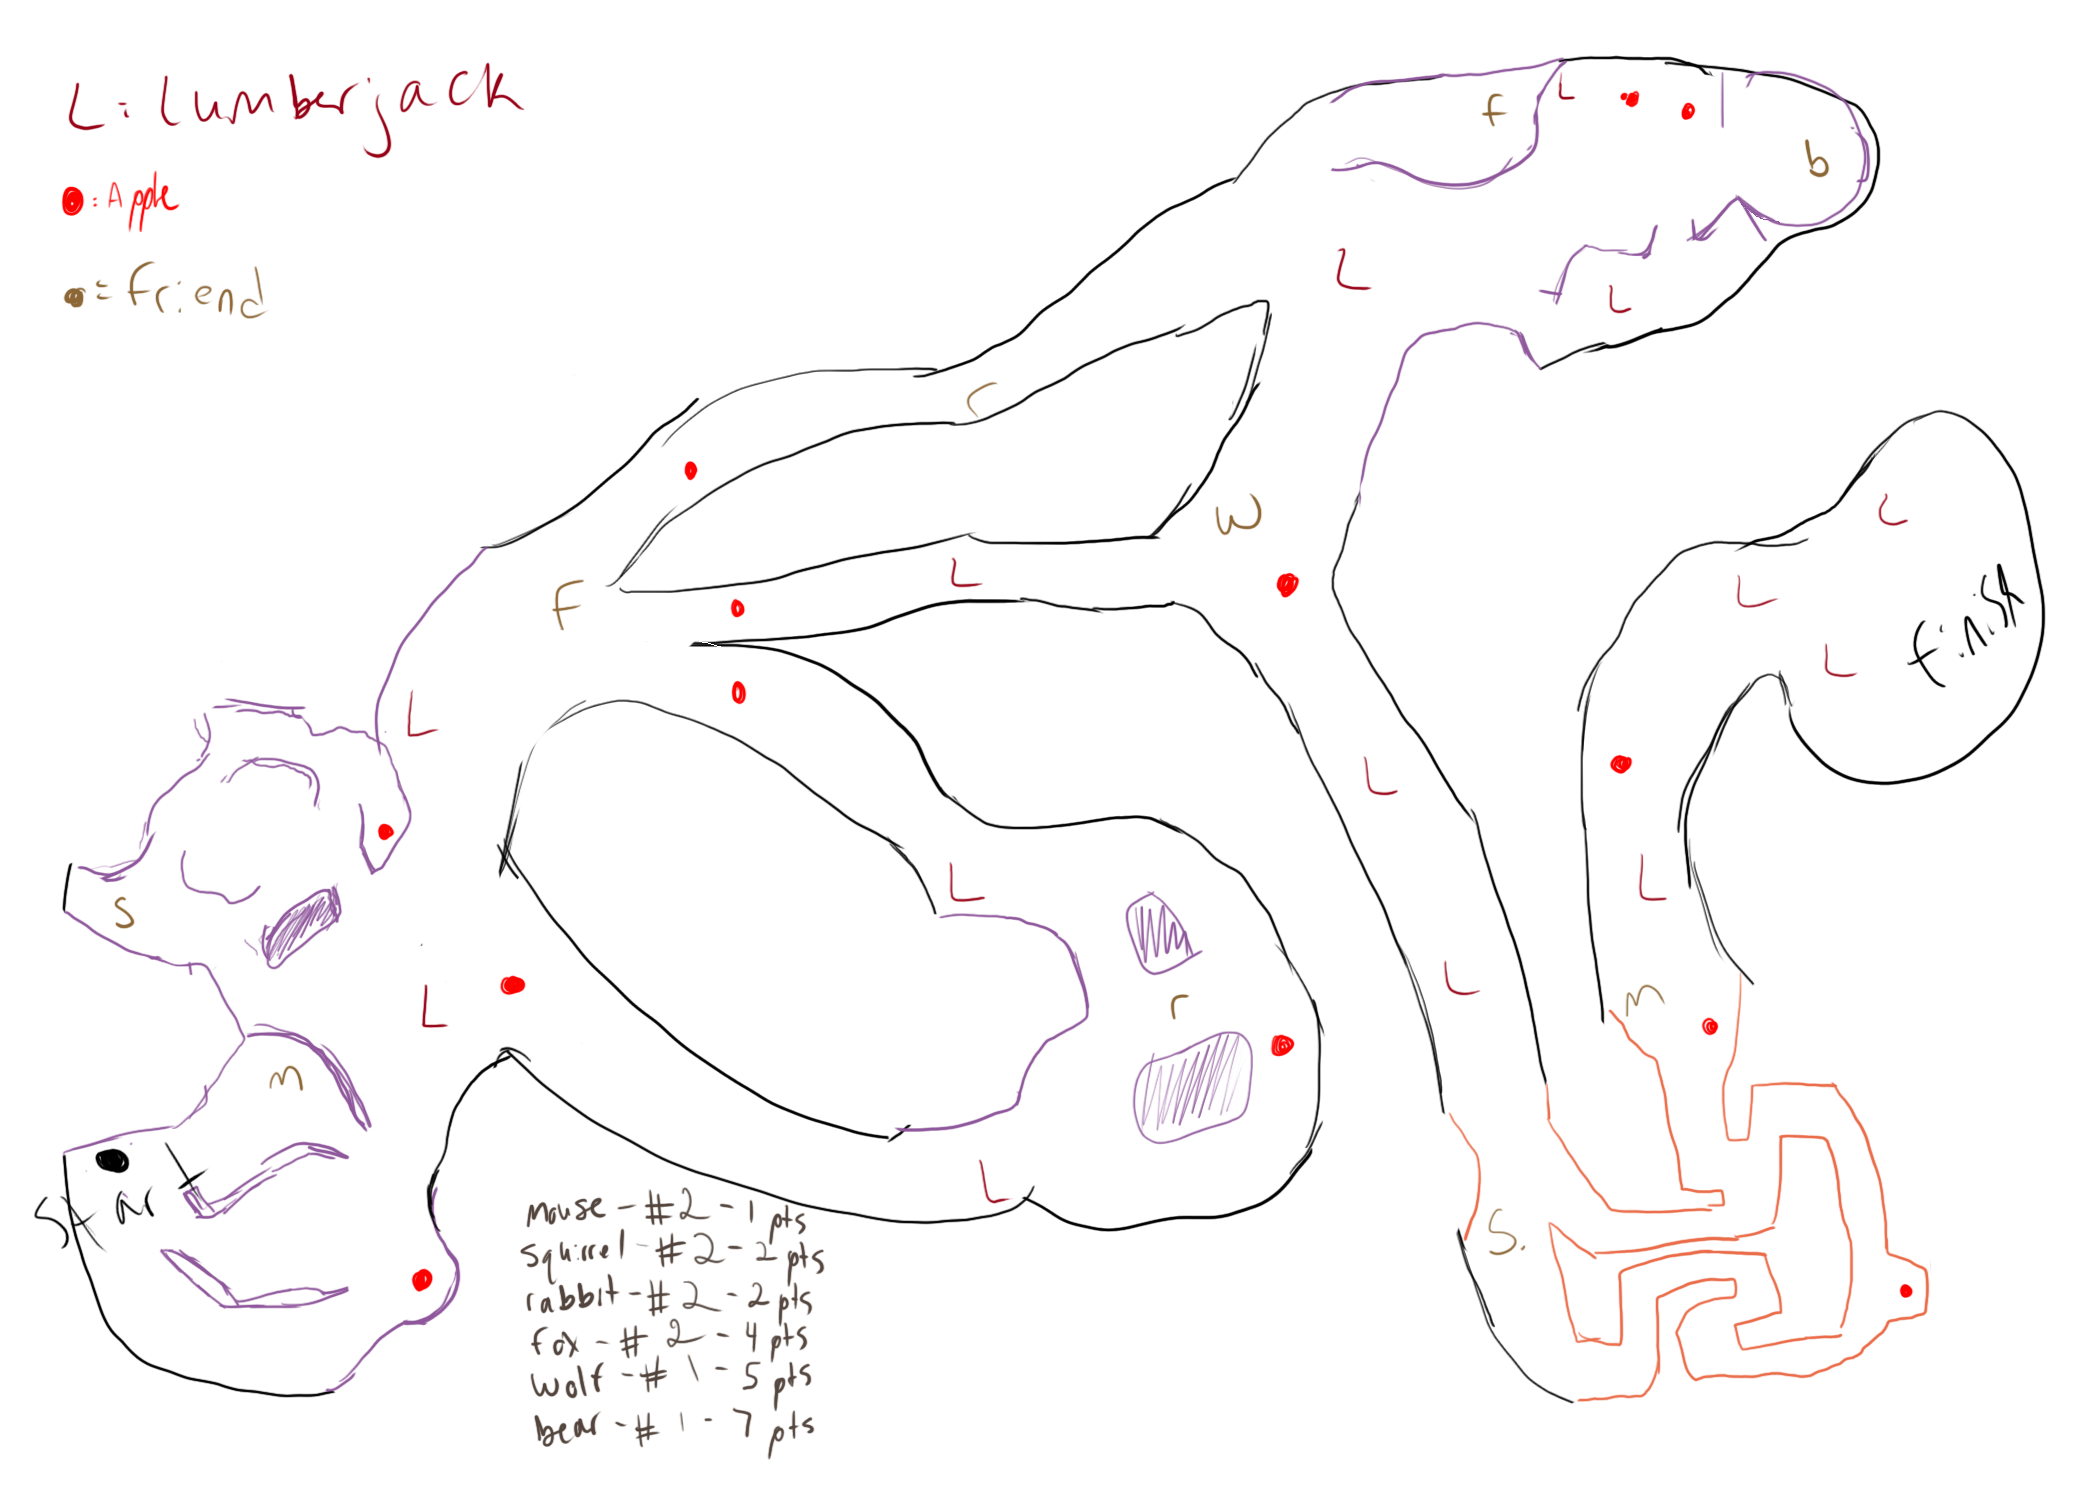 L: Lumberjack
: Apple
= friend
f
L
b
L
L
r
L
w
F
L
L
L
L
finish
L
L
s
L
L
r
L
m
m
L
Start
S.
mouse - #2 - 1 pts
squirrel - #2 - 2 pts
rabbit - #2 - 2 pts
fox - #2 - 4 pts
wolf - #1 - 5 pts
bear - #1 - 7 pts